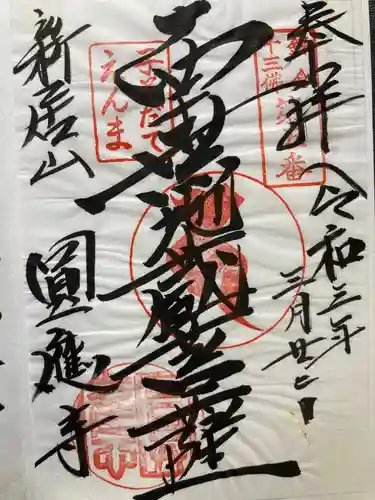 奉拝 令和三年
三月廿二日
十三佛
番
南無地蔵菩薩
子そだて
えんま
新居山
圓應寺